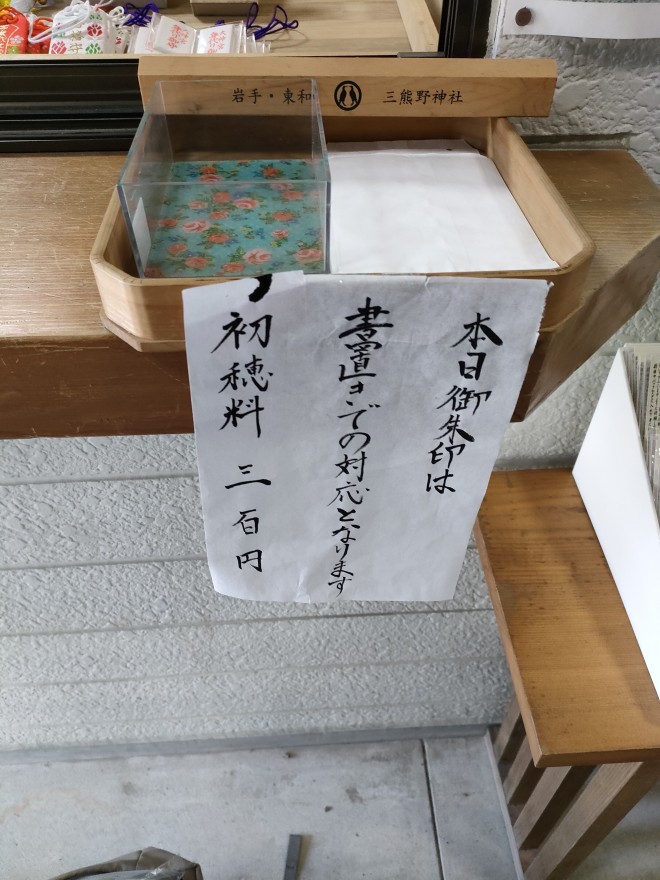 岩手・東和 三熊野神社
本日御朱印は
書置きでの対応となります
初穂料 三百円